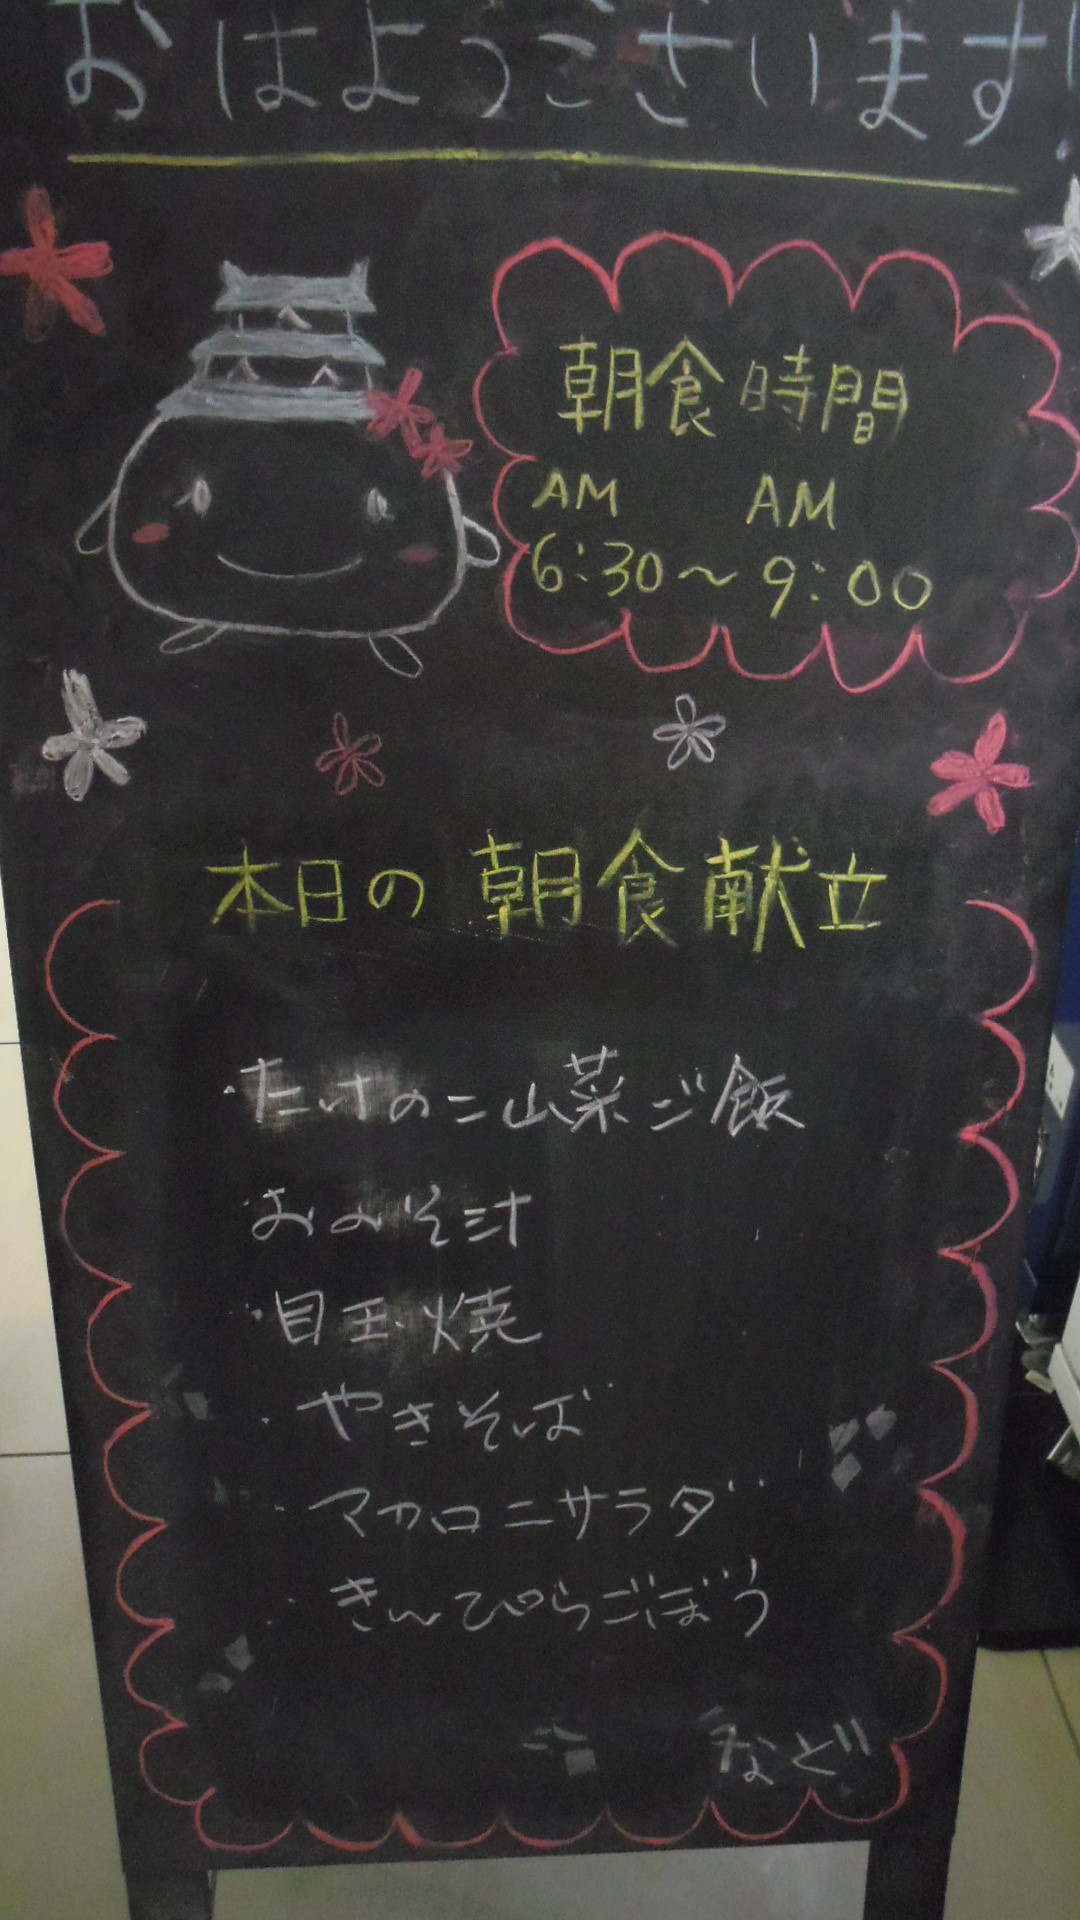 おはようございます!
朝食時間
AM AM
6:30～9:00
本日の朝食献立
・たけのこ山菜ご飯
・おみそ汁
・目玉焼
・やきそば
・マカロニサラダ
・きんぴらごぼう
など